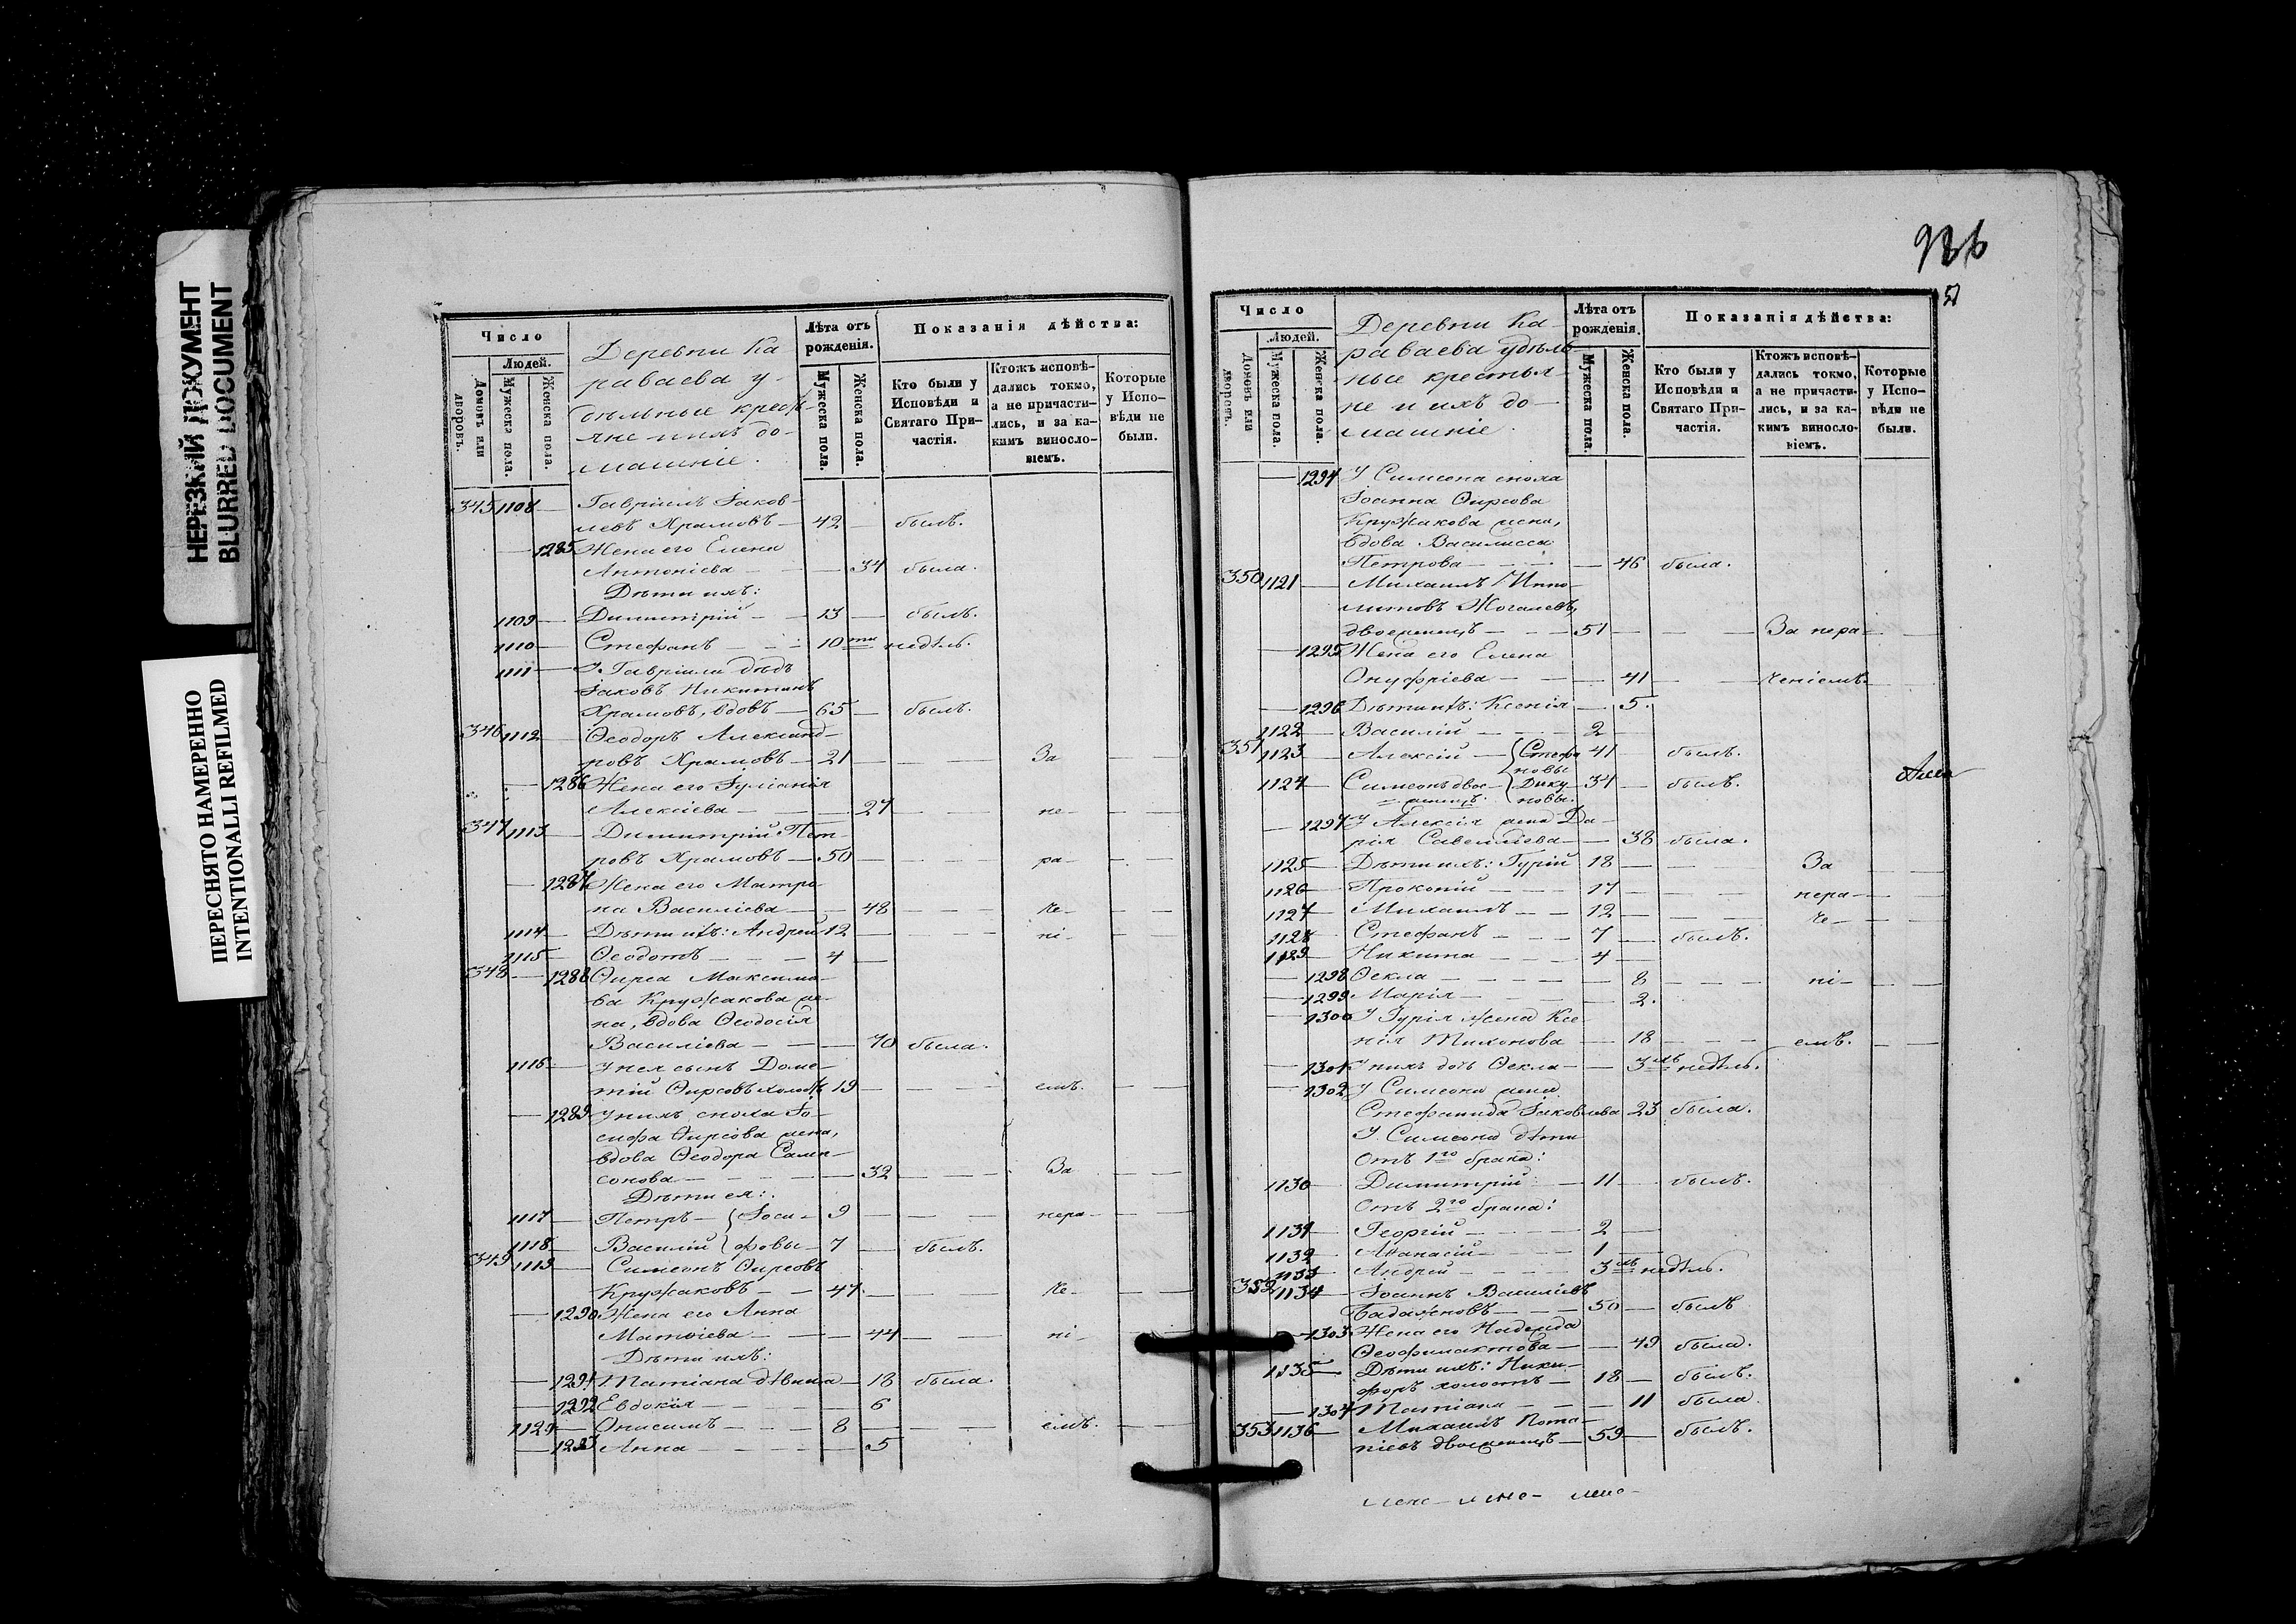 НЕРЕЗКИЙ ДОКУМЕНТ
BLURRED DOCUMENT
ПЕРЕСНЯТО НАМЕРЕННО
INTENTIONALLI REFILMED
Число
Людей.
Домовъ или дворовъ.
Мужеска пола.
Женска пола.
Деревни Ка
раваева у-
дѣльные кресть-
яне и ихъ до-
машніе.
Лѣта отъ рожденія.
Мужеска пола.
Женска пола.
Показанія дѣйства:
Кто были у Исповѣди и Святаго Причастія.
Ктожъ исповѣдались токмо, а не причастились, и за какимъ винословіемъ.
Которые у Исповѣди не были.
345 1108 Гавріилъ Іаков-
левъ Храмовъ 42 былъ.
1285 Жена его Елена
Антоніева 34 была.
Дѣти ихъ:
1109 Димитрій 13 былъ.
1110 Стефанъ 10ти недѣль.
1111 У Гавріила дядь
Іаковъ Никитинъ
Храмовъ, вдовъ 65 былъ.
346 1112 Ѳеодоръ Александ-
ровъ Храмовъ 21 За
1286 Жена его Іуліанія
Алексіева 27 не-
347 1113 Димитрій Пет-
ровъ Храмовъ 50 ра-
1287 Жена его Матро
на Василіева 48 че-
1114 Дѣти ихъ: Андрей 12 ні-
1115 Ѳеодотъ 4
348 1288 Ѳирса Максимо-
ва Кружакова же-
на, вдова Ѳеодосія
Василіева 70 была.
1116 У нея сынъ Доме-
тій Ѳирсовъ холостъ 19 емъ.
1289 У нихъ сноха Іо-
сифа Ѳирсова жена,
вдова Ѳеодора Самп-
сонова 32 За
Дѣти ея:
1117 Петръ Іоси- 9 нера-
1118 Василій фовы 7 былъ.
349 1119 Симеонъ Ѳирсовъ
Кружаковъ 47 че-
1290 Жена его Анна
Матѳіева 44 ні-
Дѣти ихъ:
1291 Татіана дѣвица 18 была.
1292 Евдокія 6
1120 Онисимъ 8 емъ.
1293 Анна 5
936
Число
Людей.
Домовъ или дворовъ.
Мужеска пола.
Женска пола.
Деревни Ка-
раваева удѣль-
ные крестья-
не и ихъ до-
машніе.
Лѣта отъ рожденія.
Мужеска пола.
Женска пола.
Показанія дѣйства:
Кто были у Исповѣди и Святаго Причастія.
Ктожъ исповѣдались токмо, а не причастились, и за какимъ винословіемъ.
Которые у Исповѣди не были.
1294 У Симеона сноха
Іоанна Ѳирсова
Кружакова жена,
вдова Василисса
Петрова 46 была.
350 1121 Михаилъ Иппо-
литовъ Жогалевъ,
двоеженецъ 51 За нера-
1295 Жена его Елена
Онуфріева 41 ченіемъ.
1296 Дѣти ихъ: Ксенія 5.
1122 Василій 2
351 1123 Алексій Стефа 41 былъ.
новы
1124 Симеонъ двое- Дику 34 былъ.
женецъ. новы.
1297 У Алексія жена Да-
рія Савелліева 38 была.
1125 Дѣти ихъ: Гурій 18 За
1126 Прокопій 17 нера-
1127 Михаилъ 12 че-
1128 Стефанъ 7 былъ.
1129 Никита 4
1298 Ѳекла 8 ні-
1299 Марія 2.
1300 У Гурія жена Ксе-
нія Тихонова 18 емъ.
1301 У нихъ дочь Ѳекла 3хъ недѣль.
1302 У Симеона жена
Стефанида Іаковлева 23 была.
У Симеона дѣти
Отъ 1го брака:
1130 Димитрій 11 былъ.
Отъ 2го брака:
1131 Георгій 2
1132 Аѳанасій 1
1133 Андрей 3хъ недѣль.
352 1134 Іоаннъ Василіевъ
Бадажковъ 50 былъ
1303 Жена его Надежда
Ѳеофилактова 49 была.
1135 Дѣти ихъ: Ники-
форъ холостъ 18 былъ.
1304 Татіана 11 была
353 1136 Михаилъ Пота-
піевъ двоеженецъ 59 былъ.